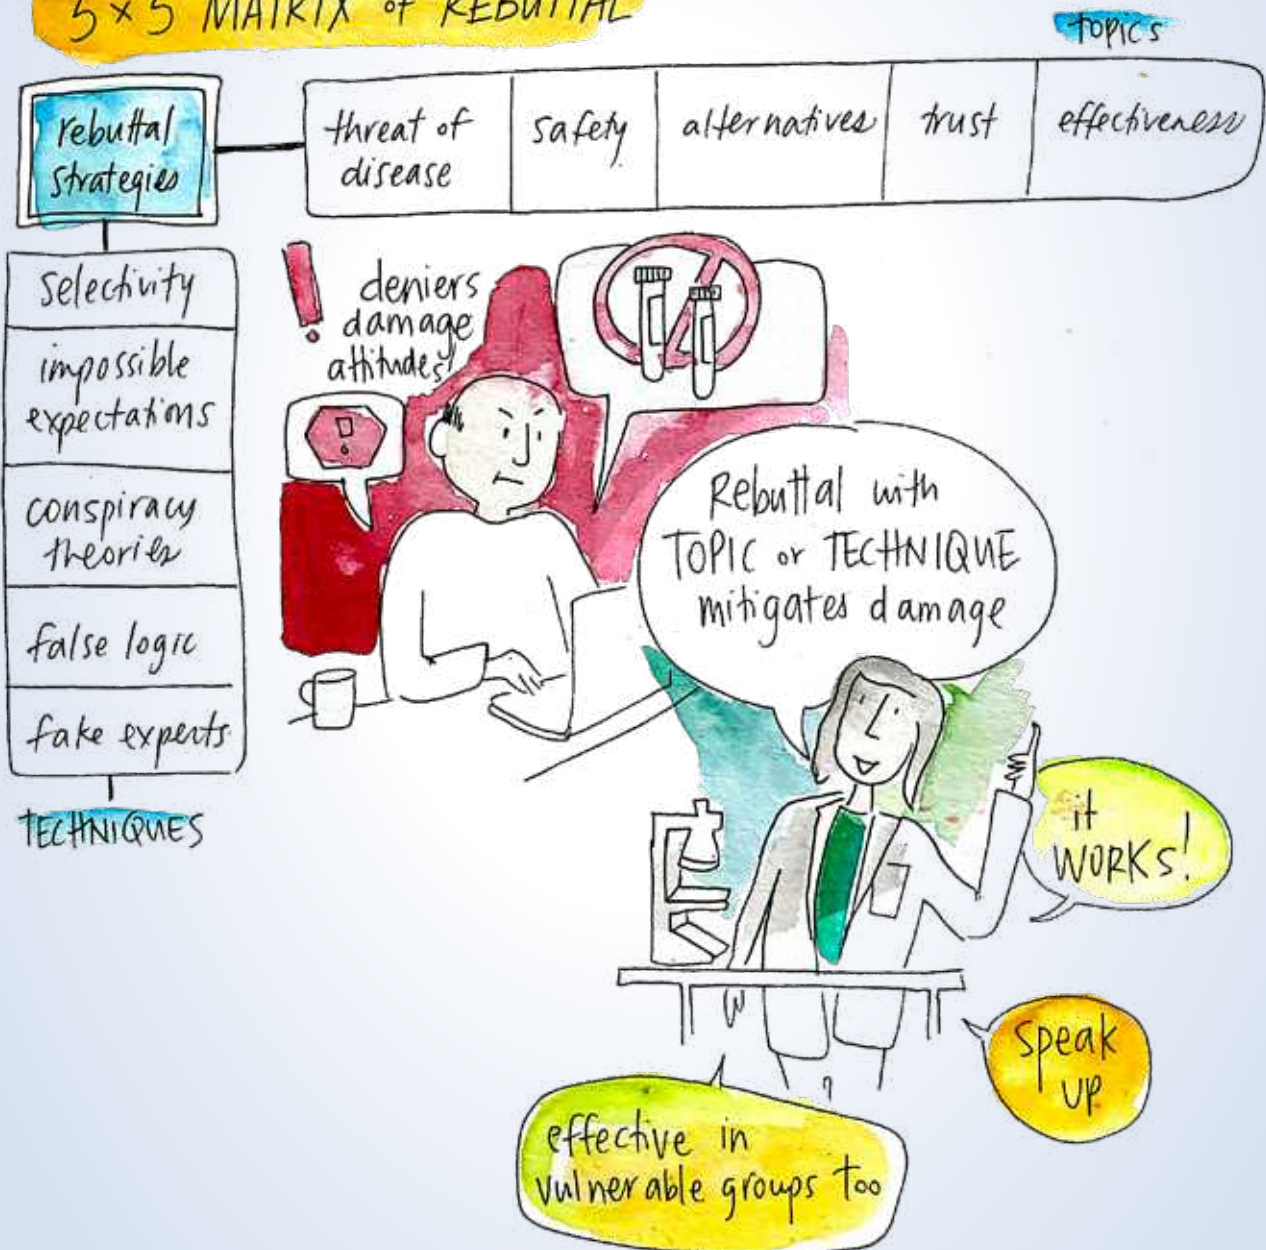 5x5 MATRIX of REBUTTAL
TOPICS
rebuttal
strategies
threat of
disease
safety
alternatives
trust
effectiveness
selectivity
impossible
expectations
conspiracy
theories
false logic
fake experts
TECHNIQUES
!
deniers
damage
attitudes!
!
Rebuttal with
TOPIC or TECHNIQUE
mitigates damage
it
WORKS!
speak
up
effective in
vulnerable groups too